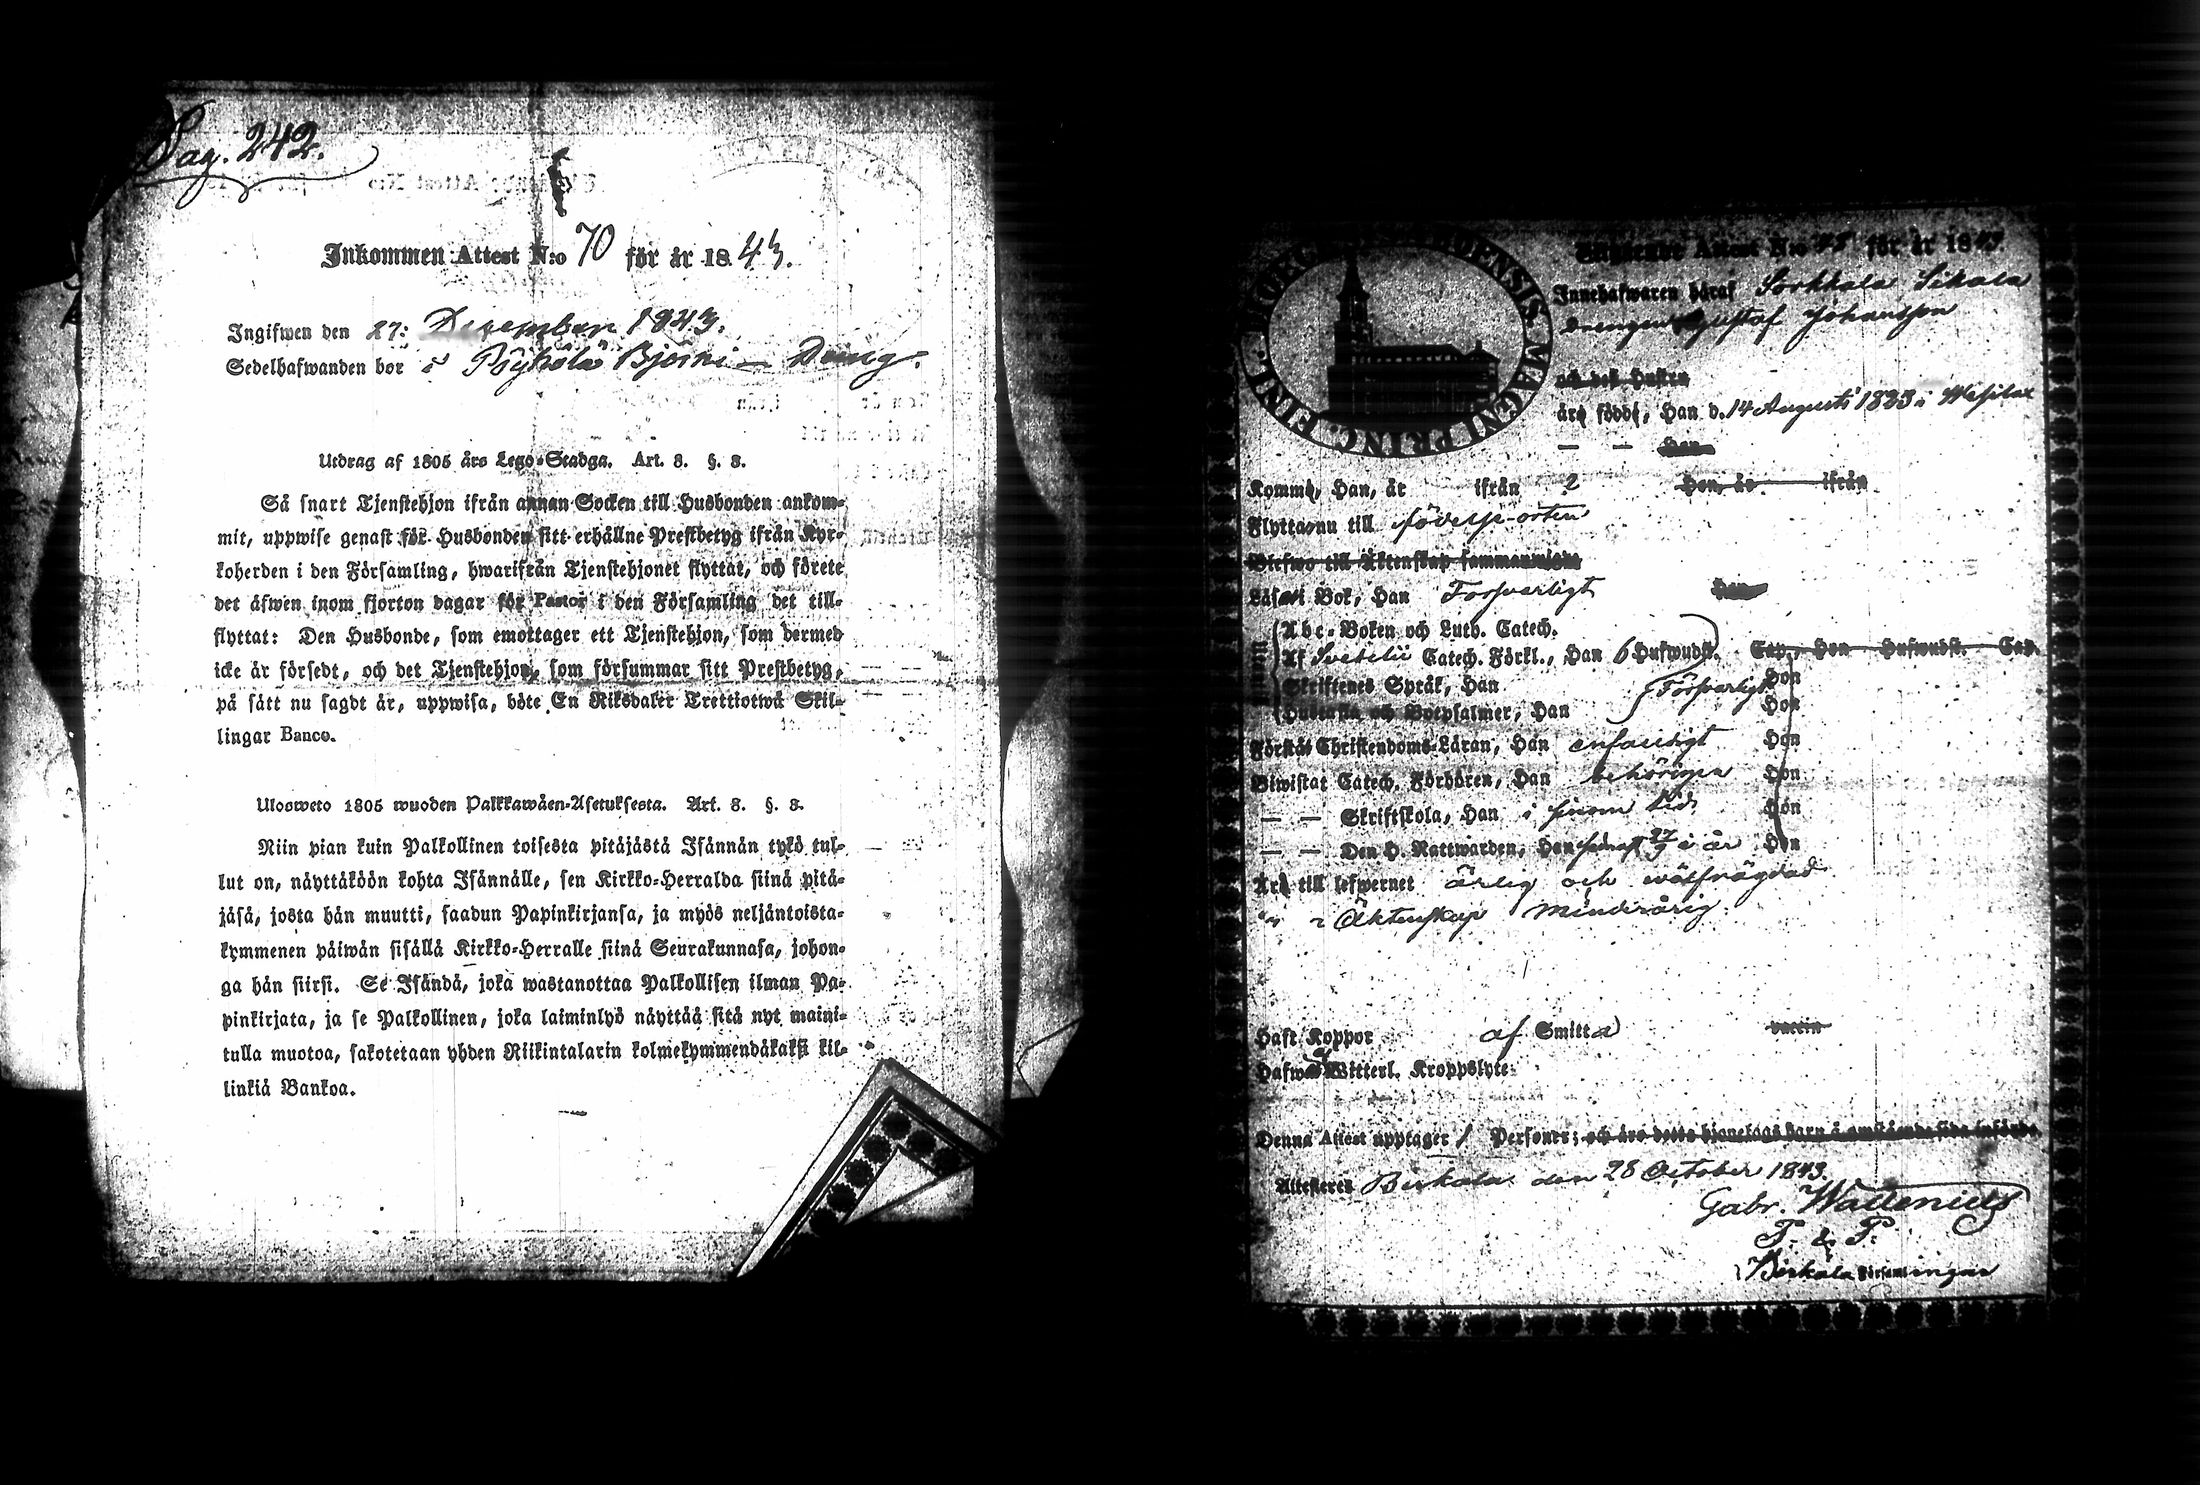 Pag. 242.
Inkommen Attest N:o 70 för år 1843.
Ingifwen den 27: December 1843.
Sedelhafwanden bor i Pöyhölä Björni — Dräng.
Utdrag af 1805 års Lego-Stadga. Art. 3. §. 3.
Så snart Tjenstehjon ifrån annan Socken till Husbonden ankom-
mit, uppwise genast för Husbonden sitt erhållne Prestbetyg ifrån Kyr-
koherden i den Församling, hwarifrån Tjenstehjonet flyttat, och förete
det äfwen inom fjorton dagar för Pastor i den Församling det till-
flyttat: Den Husbonde, som emottager ett Tjenstehjon, som dermed
icke är försedt, och det Tjenstehjon, som försummar sitt Prestbetyg,
på sätt nu sagdt är, uppwisa, böte En Riksdaler Trettiotwå Skil-
lingar Banco.
Ulosweto 1805 wuoden Palkkawäen-Asetuksesta. Art. 3. §. 3.
Niin pian kuin Palkollinen toisesta pitäjästä Isännän tykö tul-
lut on, näyttäköön kohta Isännälle, sen Kirkko-Herralda siinä pitä-
jäsä, josta hän muutti, saadun Papinkirjansa, ja myös neljäntoista-
kymmenen päiwän sisällä Kirkko-Herralle siinä Seurakunnasa, johon-
ga hän siirsi. Se Isändä, joka wastanottaa Palkollisen ilman Pa-
pinkirjata, ja se Palkollinen, joka laiminlyö näyttää sitä nyt maini-
tulla muotoa, sakotetaan yhden Riikintalarin kolmekymmendäkaksi kil-
linkiä Bankoa.
BORGOENSIS MAGNI PRINC. FINL.
Attest N:o för år 1843
Innehafwaren häraf Sorkkala Sikala
drengen Gustaf Johansson
och dess Hustru
äro födde, Han d. 14 Augusti 1823 i Wesilax
— — Hon
Komme, Han, år ifrån 2 Hon, år ifrån
Flytta nu till födelse-orten
Blefwo till Äktenskap sammanwigde
Läser i Bok, Han Forsvarligt Hon
Abc-Boken och Luth. Catech.
Af Svebelii Catech. Förkl., Han 6 Hufwudst. Cap., Hon Hufwudst. Cap.
Skriftenes Språk, Han Försvarligt Hon
Hustafla och Botpsalmer, Han Hon
Förstår Christendoms-Läran, Han enfaldigt Hon
Biwistat Catech. Förhören, Han behörigen Hon
— — Skriftskola, Han i sinom tid Hon
— — Den H. Nattwarden, Han senast 27/9 i år Hon
Äro till lefwernet ärlig och wälfrägdad
" " Äktenskap minderårig.
Haft Koppor af Smitta vaccin
Hafwa Witterl. Kroppslyte:
Denna Attest upptager 1 Personer; och äro detta hjonelags barn å omstående sida införde.
Attesteres Birkala den 28 October 1843.
Gabr. Wallenius
P. & P.
Birkala Församlingar